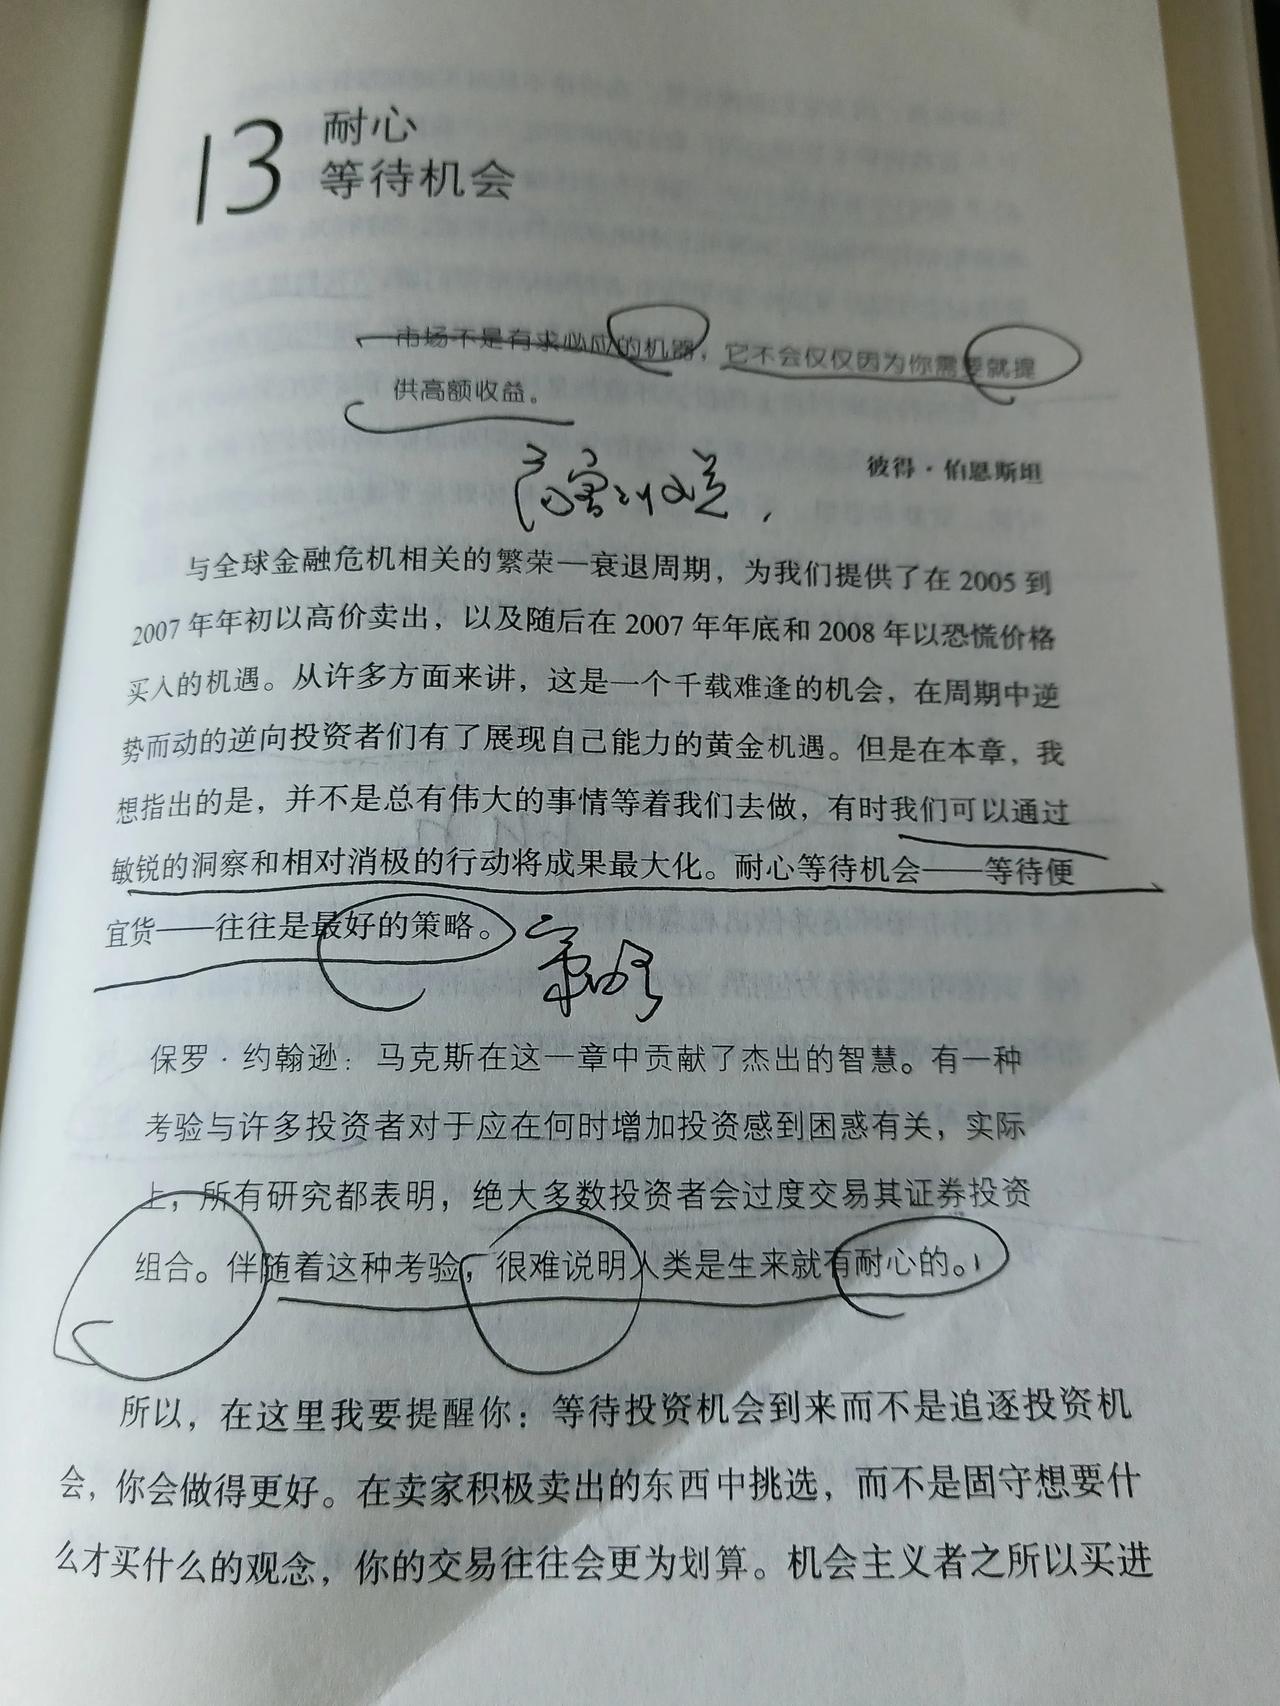 13
耐心
等待机会
市场不是有求必应的机器，它不会仅仅因为你需要就提
供高额收益。
彼得·伯恩斯坦
与全球金融危机相关的繁荣—衰退周期，为我们提供了在 2005 到
2007 年年初以高价卖出，以及随后在 2007 年年底和 2008 年以恐慌价格
买入的机遇。从许多方面来讲，这是一个千载难逢的机会，在周期中逆
势而动的逆向投资者们有了展现自己能力的黄金机遇。但是在本章，我
想指出的是，并不是总有伟大的事情等着我们去做，有时我们可以通过
敏锐的洞察和相对消极的行动将成果最大化。耐心等待机会——等待便
宜货——往往是最好的策略。
策略
保罗·约翰逊：马克斯在这一章中贡献了杰出的智慧。有一种
考验与许多投资者对于应在何时增加投资感到困惑有关，实际
上，所有研究都表明，绝大多数投资者会过度交易其证券投资
组合。伴随着这种考验，很难说明人类是生来就有耐心的。
所以，在这里我要提醒你：等待投资机会到来而不是追逐投资机
会，你会做得更好。在卖家积极卖出的东西中挑选，而不是固守想要什
么才买什么的观念，你的交易往往会更为划算。机会主义者之所以买进